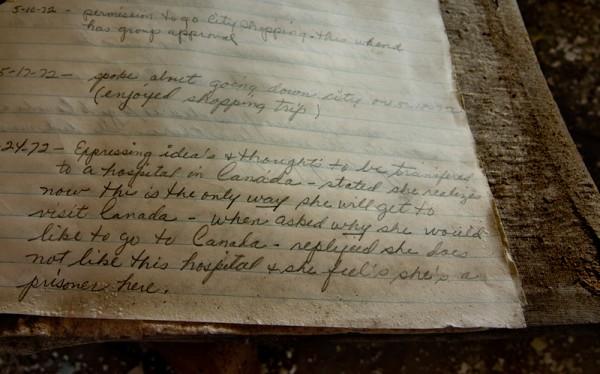 5-10-72 - permission to go City shopping - this wkend
has group approval
5-17-72 - spoke about going down city on 5-10-72
(enjoyed shopping trip)
24-72 - Expressing idea's & thoughts to be transfered
to a hospital in Canada - stated she realizes
now this is the only way she will get to
visit Canada - when asked why she would
like to go to Canada - replyed she does
not like this hospital & she feel's she's a
prisoner here.